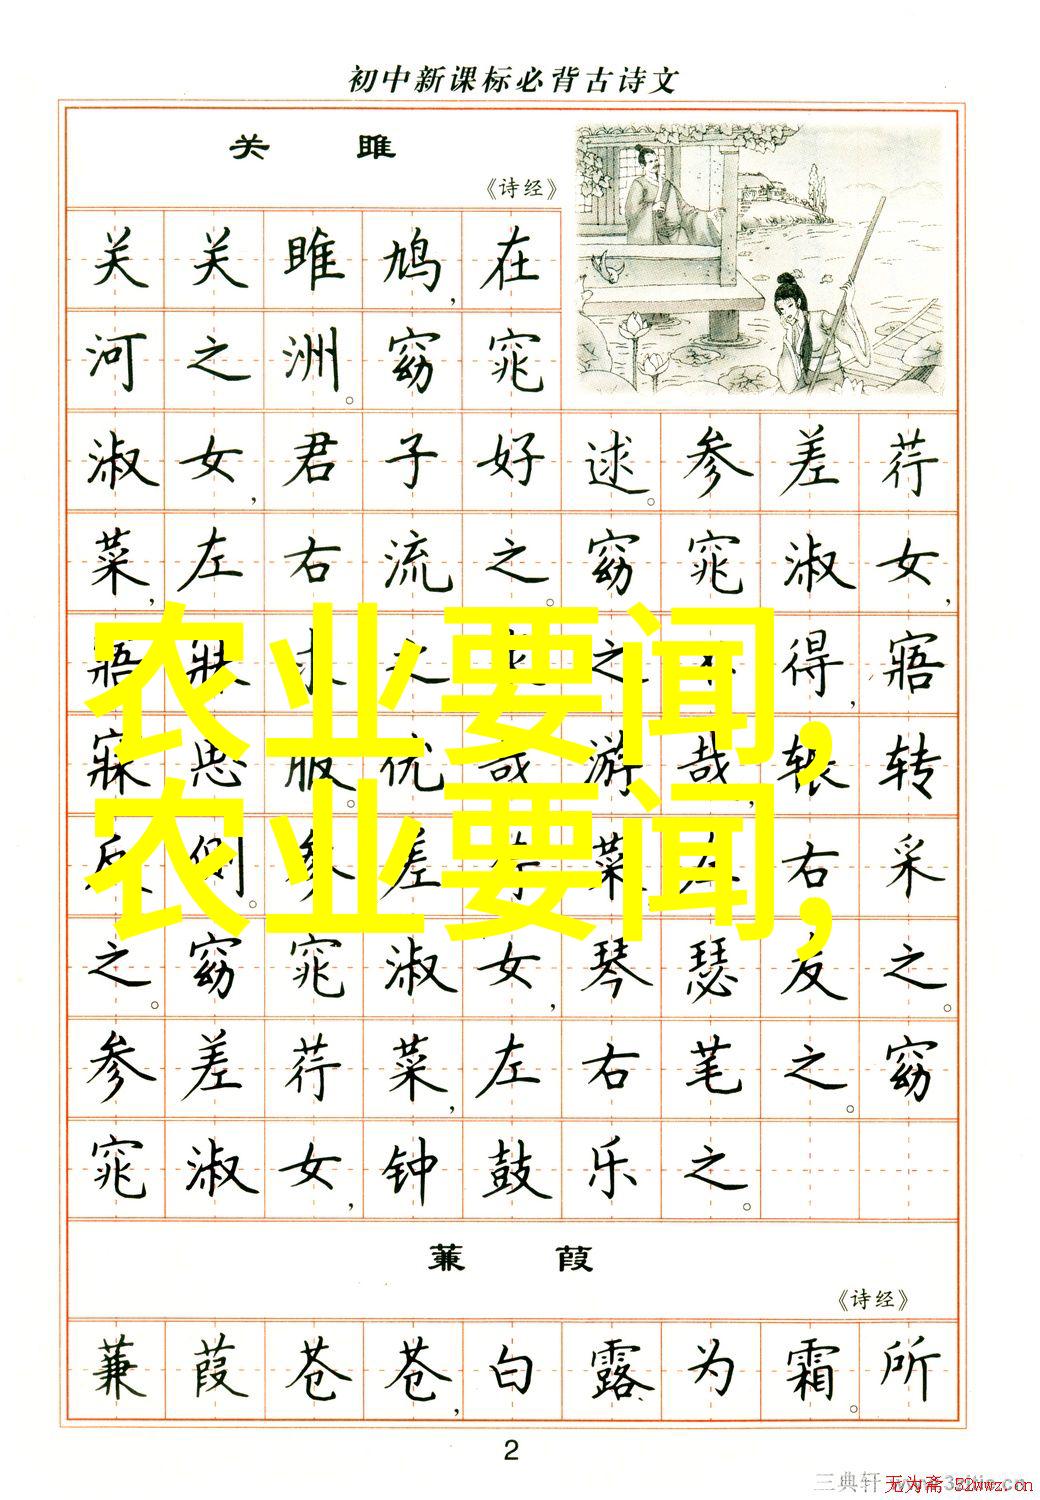 初中新课标必背古诗文
关 雎
《诗经》
关关雎鸠,在
河之洲。窈窕
淑女,君子好逑。参差荇
菜,左右流之。窈窕淑女,
寤寐求之。求之不得,寤
寐思服。优哉游哉,辗转
反侧。参差荇菜,左右采
之。窈窕淑女,琴瑟友之。
参差荇菜,左右芼之。窈
窕淑女,钟鼓乐之。
农业要闻,
农业要闻,
蒹 葭
《诗经》
蒹葭苍苍,白露为霜。所
2
三典轩
无为斋 52wwz.cn